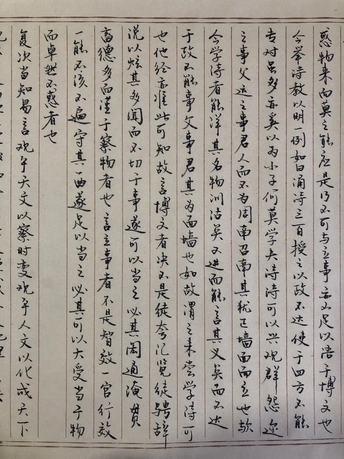 惑物来而莫之能应是乃不可与立事亦不足以语于博文也
今举诗教以明一例如曰诵诗三百授之以政不达使于四方不能
专对虽多亦奚以为小子何莫学夫诗诗可以兴观群怨迩
之事父远之事君人而不为周南召南其犹正墙面而立也欤
今学诗者能详其名物训诂矣又进而能言其义矣而不达
于政不能事父事君其为面墙也如故谓之未尝学诗可
也他经亦准此可知故言博文者决不是徒夸记览徒骋辞
说以炫其多闻而不切于事遂可以当之必其闳通淹贯
畜德多而谨于察物者也言立事者不是智效一官行效
一能不该不遍守其一曲遂足以当之必其可以大受当于物
而卓然不惑者也
复次当知易言观乎天文以察时变观乎人文以化成天下